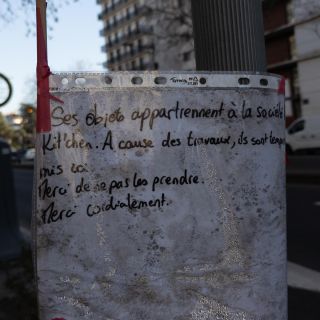 Ses objets appartiennent à la société
Kit'chen. A cause des travaux, ils sont
mis ici
Merci de ne pas les prendre.
Merci cordialement.